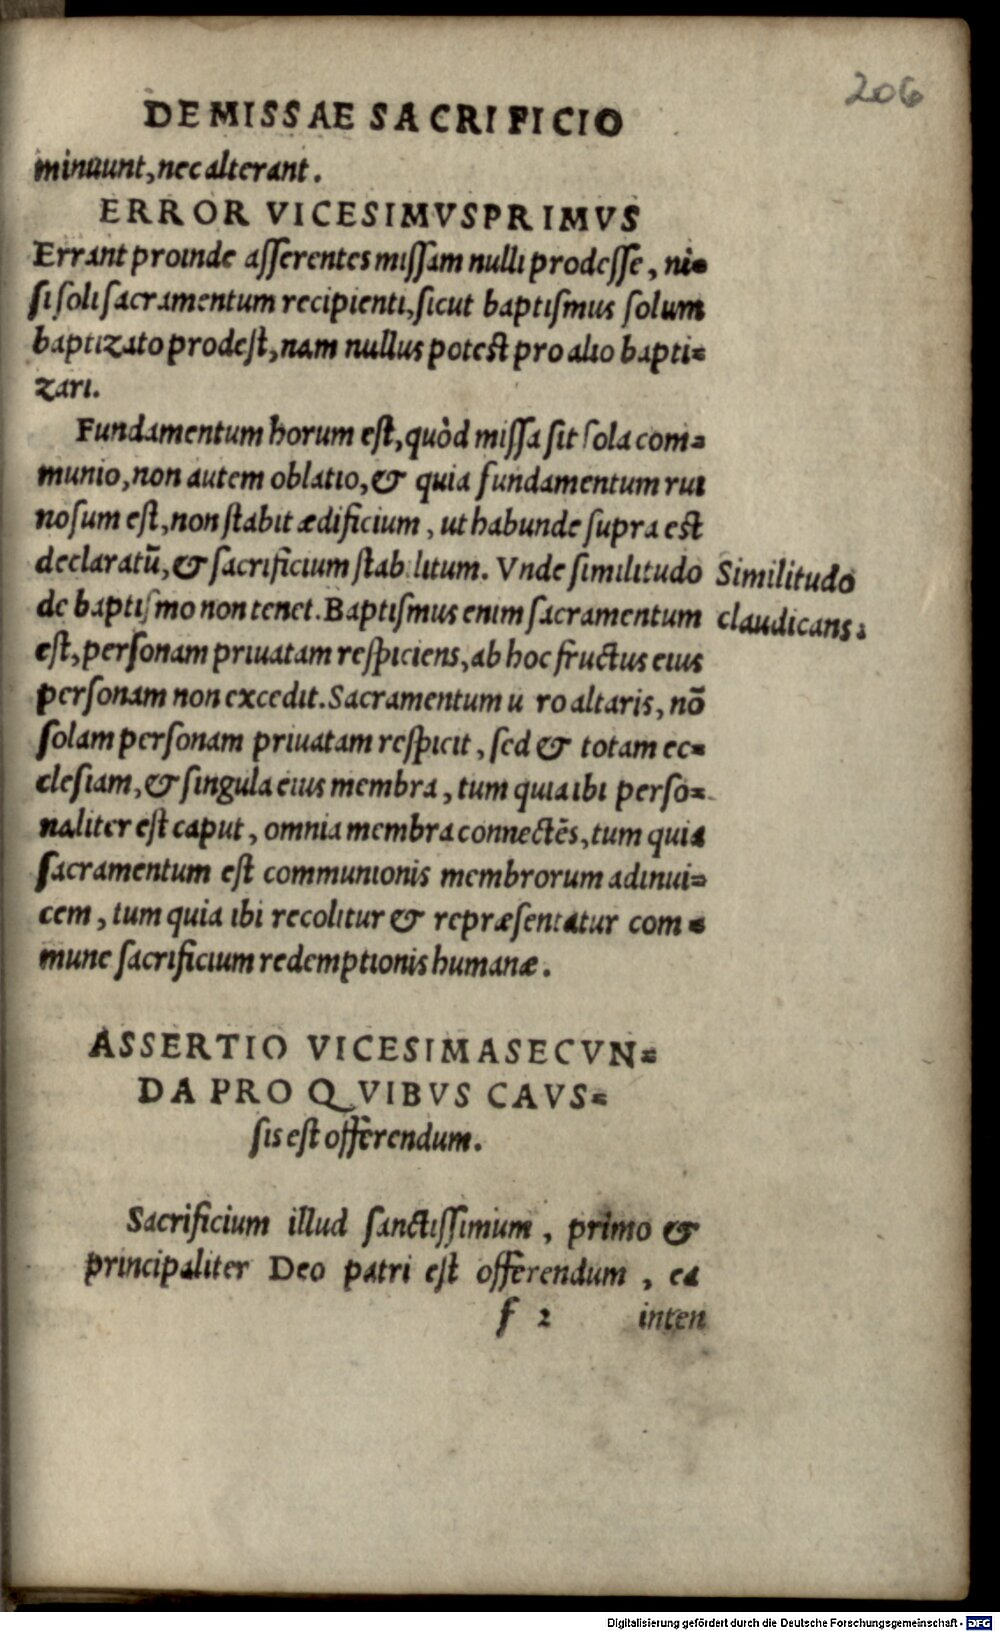 206
DE MISSAE SACRIFICIO
minuunt, nec alterant.
ERROR VICESIMVSPRIMVS
Errant proinde aſſerentes miſſam nulli prodeſſe, ni=
ſi ſoli ſacramentum recipienti, ſicut baptiſmus ſolum
baptizato prodeſt, nam nullus poteſt pro alio bapti=
zari.
Fundamentum horum eſt, quòd miſſa ſit ſola com=
munio, non autem oblatio, & quia fundamentum rui
noſum eſt, non ſtabit ædificium, ut habunde ſupra eſt
declaratū, & ſacrificium ſtabilitum. Vnde ſimilitudo
de baptiſmo non tenet. Baptiſmus enim ſacramentum
eſt, perſonam priuatam reſpiciens, ab hoc fructus eius
perſonam non excedit. Sacramentum u ro altaris, nō
ſolam perſonam priuatam reſpicit, ſed & totam ec=
cleſiam, & ſingula eius membra, tum quia ibi perſo=
naliter eſt caput, omnia membra connectēs, tum quia
ſacramentum eſt communionis membrorum adinui=
cem, tum quia ibi recolitur & repræſentatur com=
mune ſacrificium redemptionis humanæ.
Similitudo
claudicans.
ASSERTIO VICESIMASECVN=
DA PRO QVIBVS CAVS=
ſis eſt offerendum.
Sacrificium illud ſanctiſſimium, primo &
principaliter Deo patri eſt offerendum, ea
f 2 inten
Digitalisierung gefördert durch die Deutsche Forschungsgemeinschaft - DFG